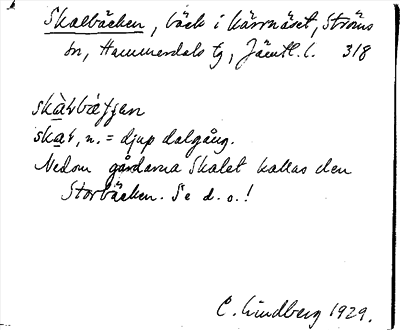 Skalbäcken, bäck i Kärrnäset, Ströms
sn, Hammerdals tg, Jämtl. l. 318
skàɫbä̀ʃʃen
skaɫ, n. = djup dalgång.
Nedom gårdarna Skalet kallas den
Storbäcken. Se d. o.!
C. Lindberg 1929.